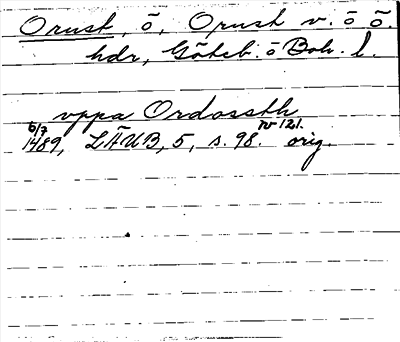 Orust, ö, Orust v. o ö.
hdr, Göteb. o Boh. l.
uppa Ordossth
6/7 nr 121.
1489, LÄUB, 5, s. 98. orig.